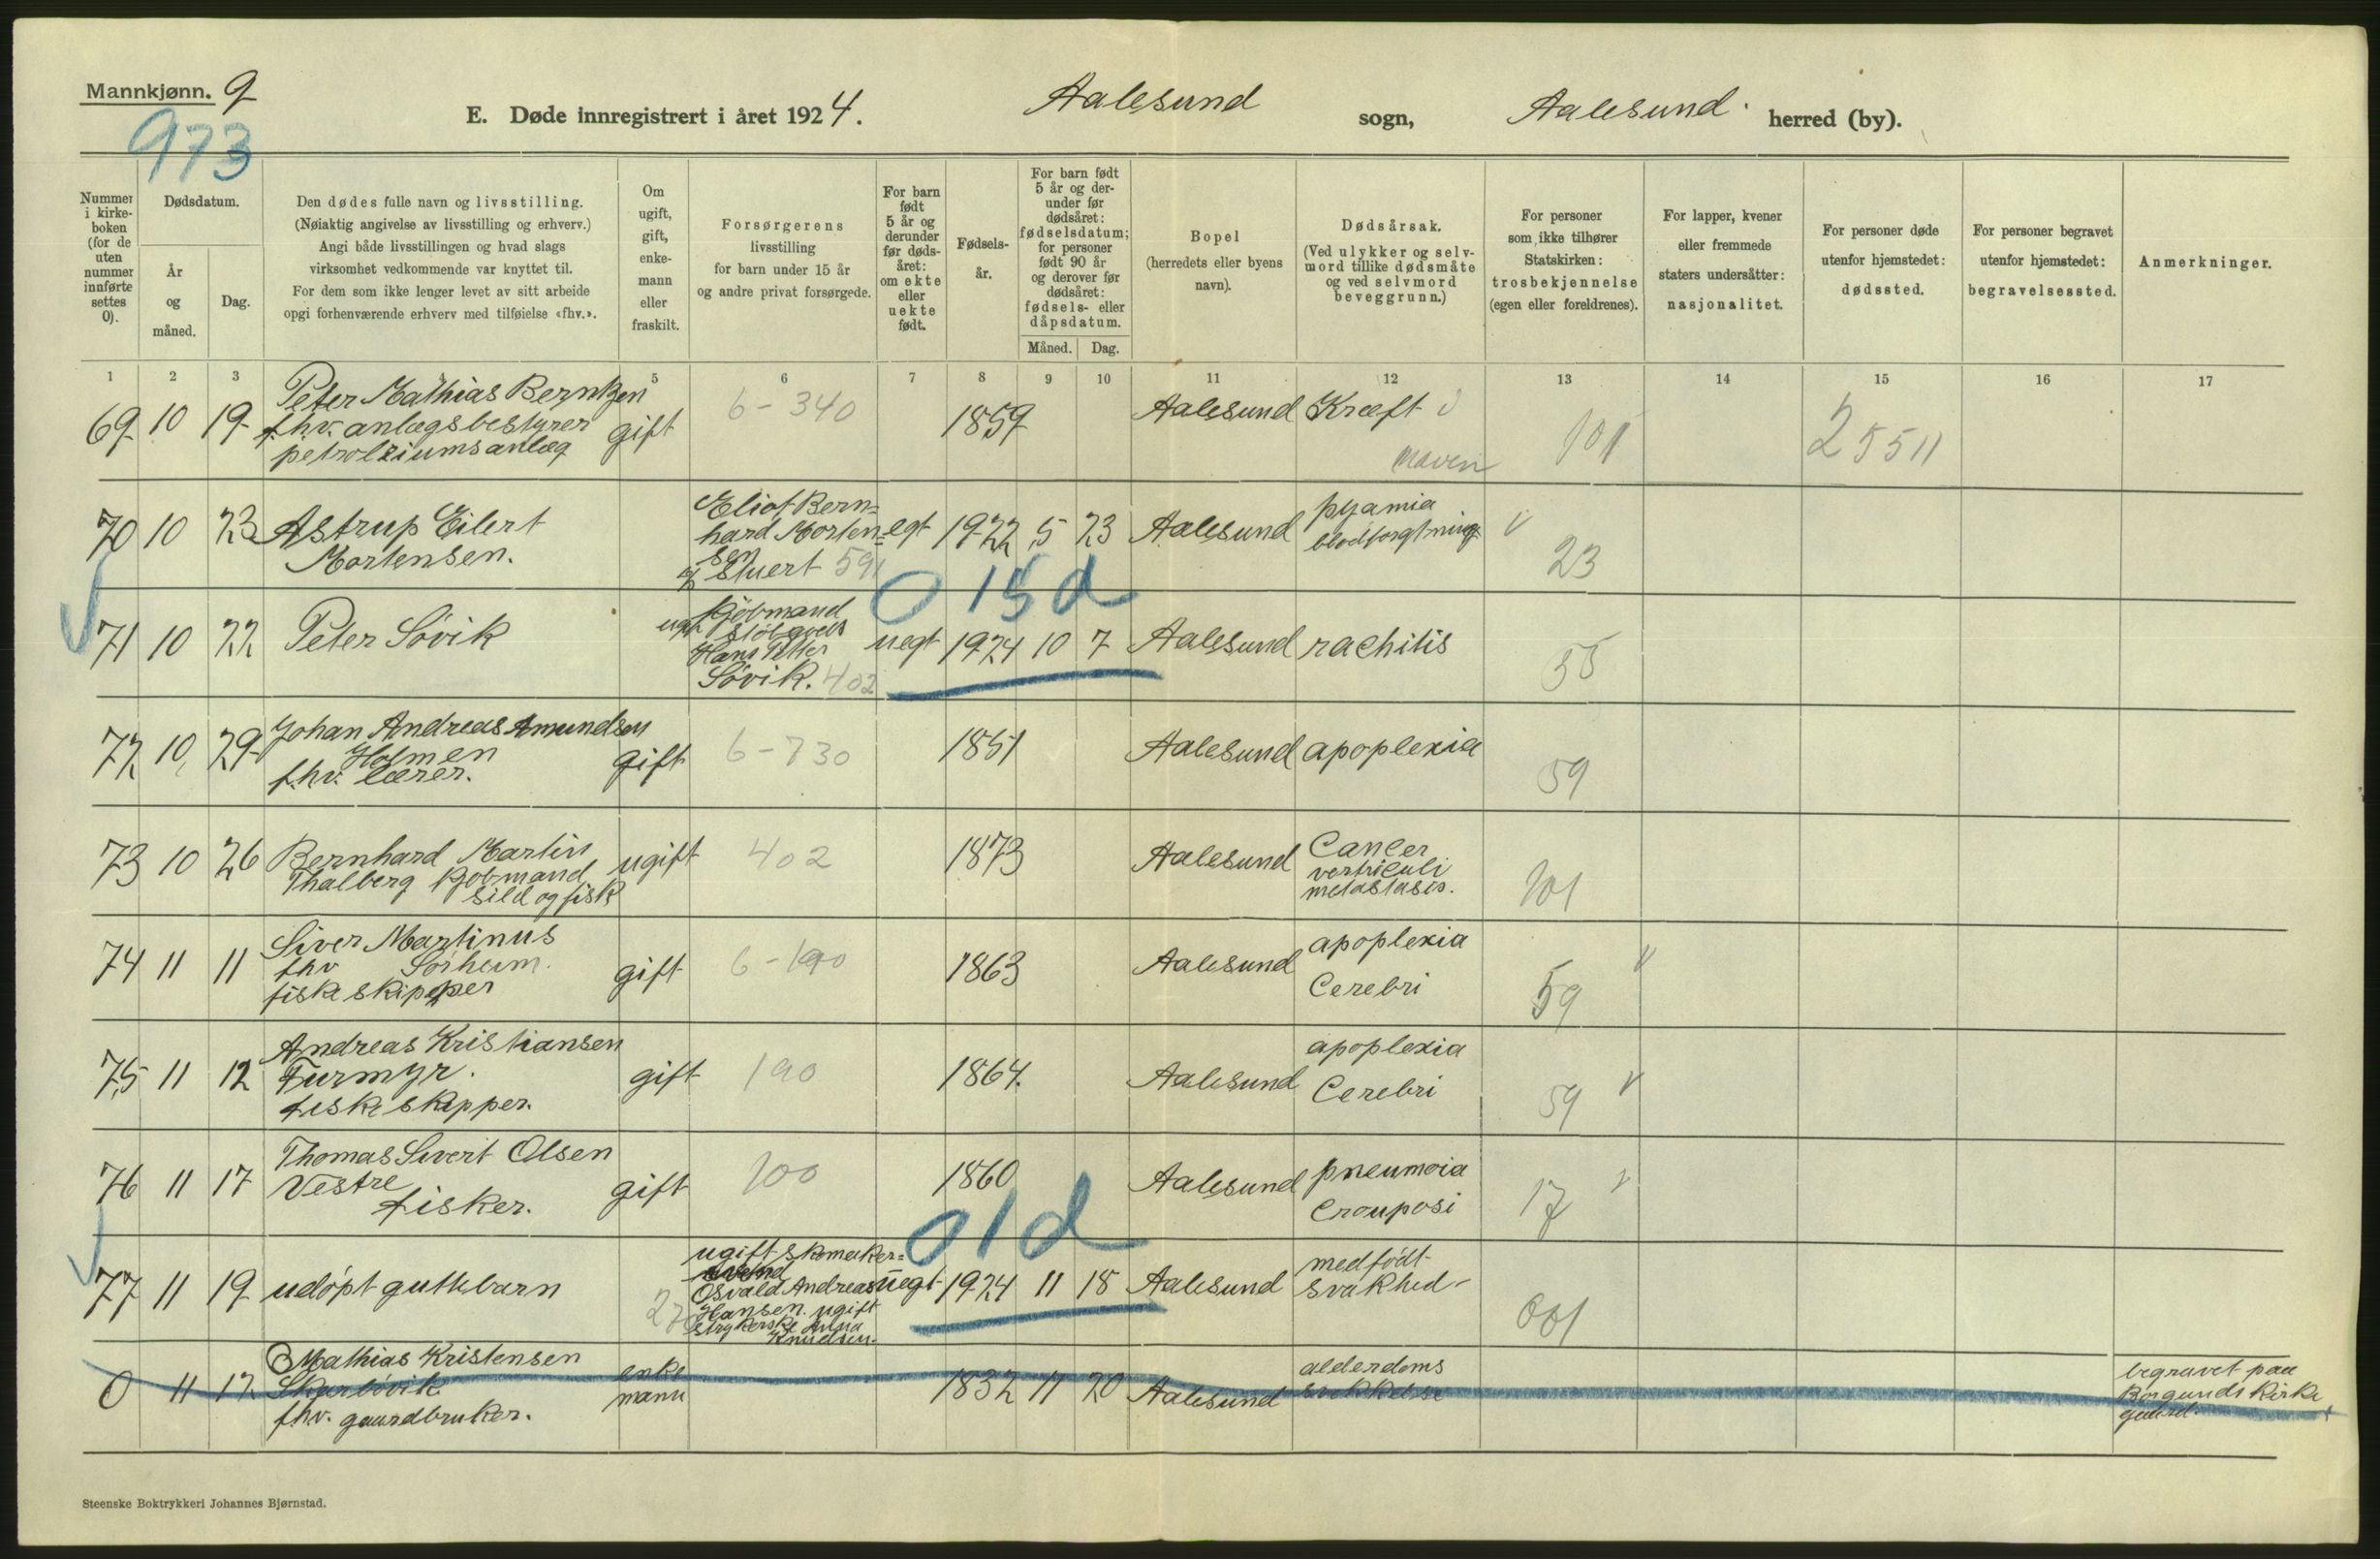 Mannkjønn. 9
973
E. Døde innregistrert i året 1924. Aalesund sogn, Aalesund herred (by).
Nummer i kirke-boken (for de uten nummer innførte settes 0).
Dødsdatum.
År og måned.
Dag.
Den dødes fulle navn og livsstilling.
(Nøiaktig angivelse av livsstilling og erhverv.)
Angi både livsstillingen og hvad slags
virksomhet vedkommende var knyttet til.
For dem som ikke lenger levet av sitt arbeide
opgi forhenværende erhverv med tilføielse «fhv.».
Om ugift, gift, enke-mann eller fraskilt.
Forsørgerens
livsstilling
for barn under 15 år
og andre privat forsørgede.
For barn født 5 år og derunder før døds-året: om ekte eller uekte født.
Fødsels-år.
For barn født 5 år og der-under før dødsåret: fødselsdatum; for personer født 90 år og derover før dødsåret: fødsels- eller dåpsdatum.
Måned. Dag.
Bopel
(herredets eller byens
navn).
Dødsårsak.
(Ved ulykker og selv-
mord tillike dødsmåte
og ved selvmord
beveggrunn.)
For personer
som ikke tilhører
Statskirken:
trosbekjennelse
(egen eller foreldrenes).
For lapper, kvener
eller fremmede
staters undersåtter:
nasjonalitet.
For personer døde
utenfor hjemstedet:
dødssted.
For personer begravet
utenfor hjemstedet:
begravelsessted.
Anmerkninger.
1 2 3 5 6 7 8 9 10 11 12 13 14 15 16 17
69 10 19 Peter Mathias Berntzen
fhv. anlægsbestyrer
petroleiumsanlæg
gift 6-340 1859 Aalesund Kræft
maven
101 25511
70 10 23 Astrup Eilert
Mortensen.
Eliot Bern=
hard Morten=
sen
Stuert 591
egt 1922 5 23 Aalesund pyamia
blodforgtning
23
0 15 d
71 10 22 Peter Sövik
ugt Kjöbmand
Hans Petter
Sövik. 402
uegt 1924 10 7 Aalesund rachitis
55
72 10 29 Johan Andreas Amundsen
Holmen
fhv. lærer.
gift 6-730 1851 Aalesund apoplexia
59
73 10 26 Bernhard Martin
Thalberg Kjobmand
sild og fisk
ugift 402 1873 Aalesund Cancer
ventriculi
metastasis.
101
74 11 11 Siver Martinus
fhv Sörheim.
fiskeskipper
gift 6-190 1863 Aalesund apoplexia
Cerebri
59
75 11 12 Andreas Kristiansen
Furmyr.
fiskeskipper.
gift 190 1864. Aalesund apoplexia
Cerebri
59
76 11 17 Thomas Sivert Olsen
Vestre
fisker.
gift 100 1860 Aalesund pneumoia
Crouposi
17
0 1 d
77 11 19 udöpt guttebarn
ugift skomaker=
svend
Osvald Andreas
Hansen. ugift
strykerske
Knudsen.
uegt 1924 11 18 Aalesund medfödt
svakhed
001
0 11 12 Mathias Kristensen
Skarbövik
fhv. gaardbruker.
enke
mann
1832 11 20 Aalesund alderdoms
svekkelse
begravet paa
Borgunds Kirke
gaard.
Steenske Boktrykkeri Johannes Bjørnstad.